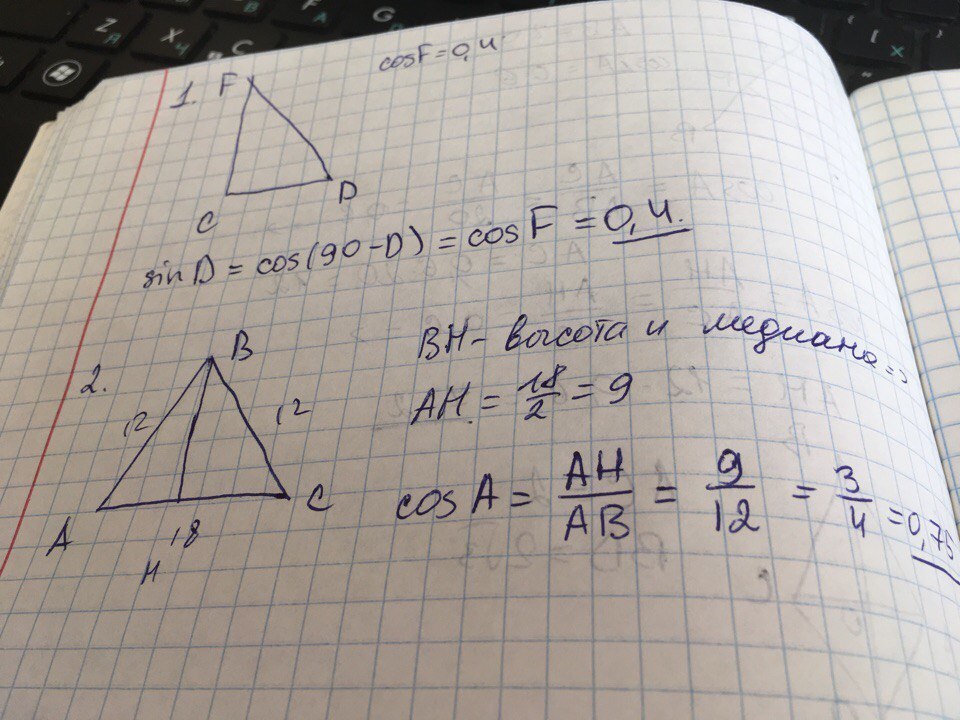 cosF = 0,4
1.
F
C
D
sin D = cos(90-D) = cosF = 0,4.
2.
B
12
12
A
18
C
H
BH - высота и медиана =>
AH = 18/2 = 9
cos A = AH/AB = 9/12 = 3/4 = 0,75